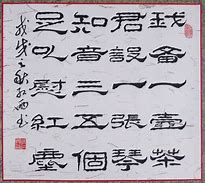 我備一壺茶
君設一張琴
知音三五個
足以慰紅塵
戊戌之秋 書